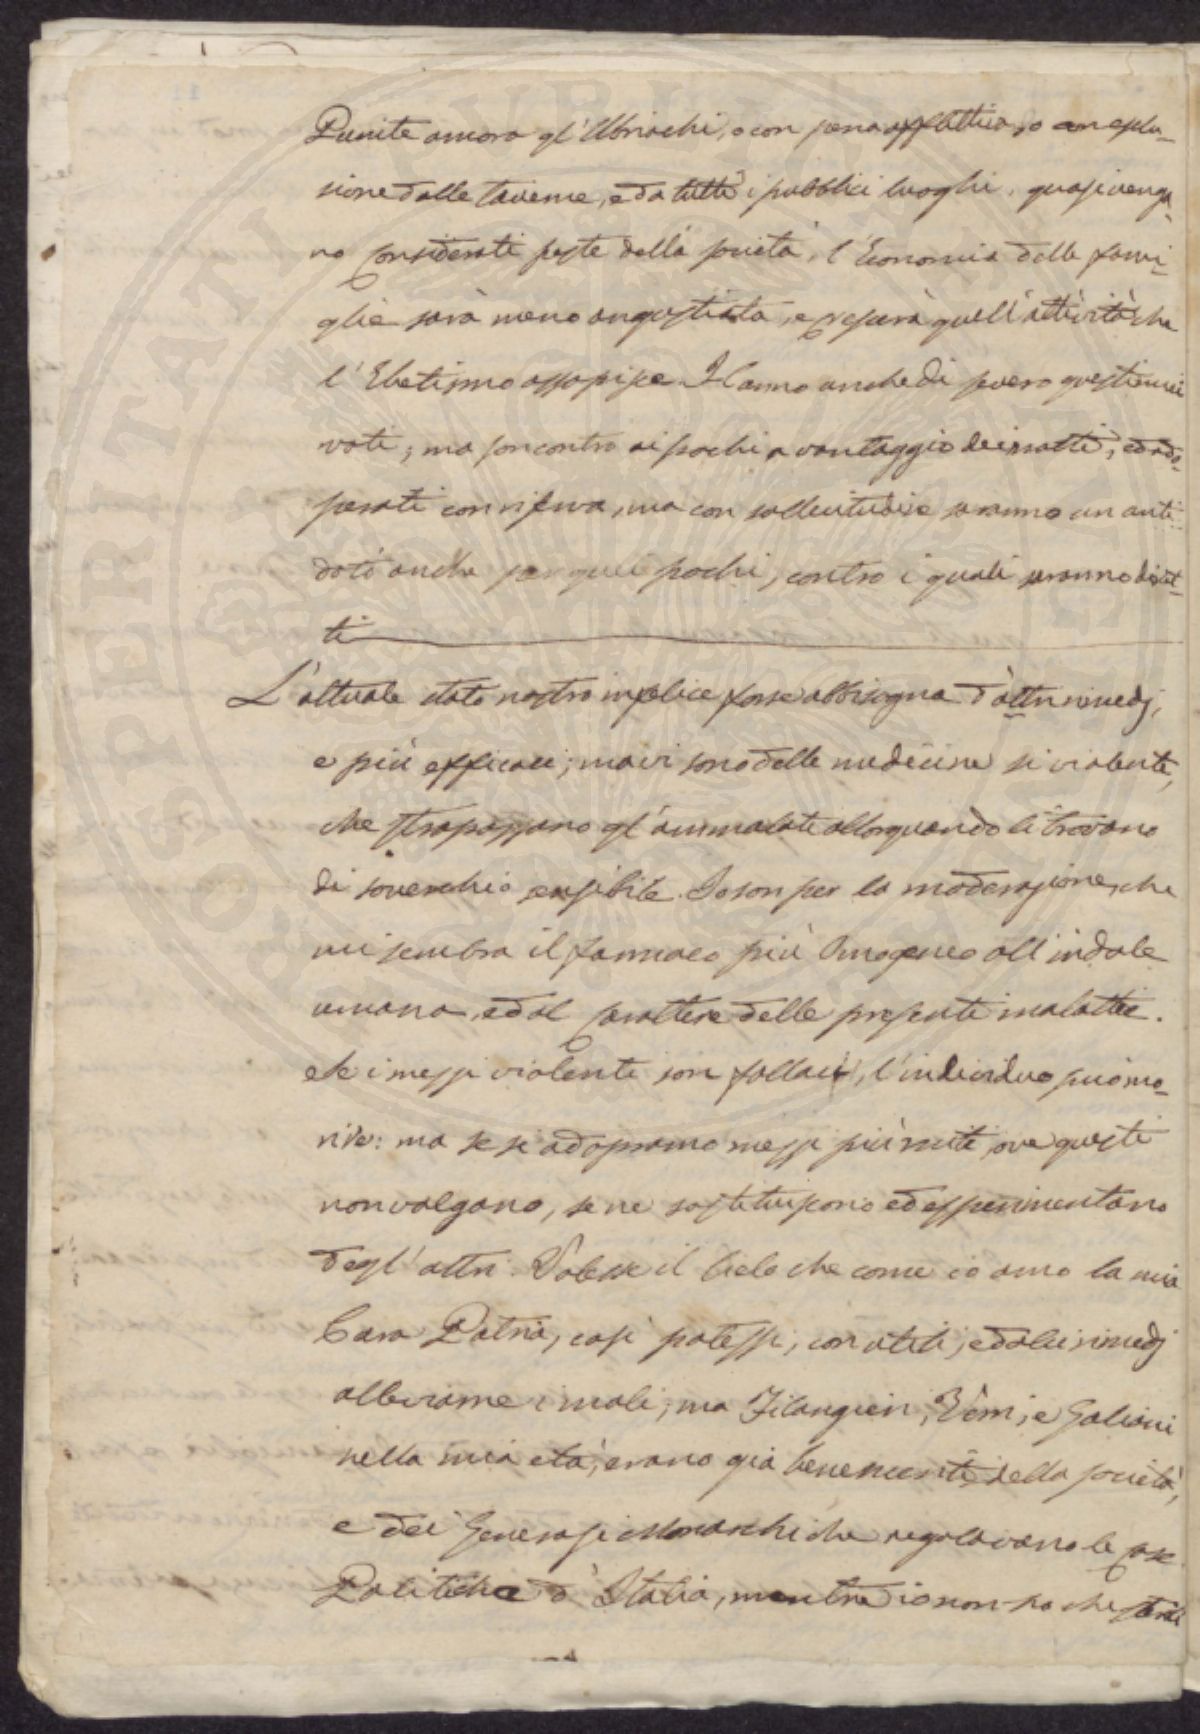 Punite ancora gl'Ubriachi, o con pena afflittiva, o con esplu-
sione dalle taverne, e da tutti i pubblici luoghi, quasi venga-
no considerati peste della società, l'Economia delle fami-
glie sarà meno angustiata, e crescerà quell'attività che
l'Ebetismo assopisce. Hanno anche di severo questi miei
voti; ma son contro ai pochi a vantaggio dei molti, ed ado-
perati con riserva, ma con sollecitudine saranno un anti-
doto anche per quei pochi, contro i quali saranno diret-
ti
L'attuale stato nostro infelice forse abbisogna d'altri rimedj,
e più efficaci; ma vi sono delle medicine sì violente,
che strapazzano gl'ammalati allorquando li trovano
di soverchio sensibile. Io son per la moderazione, che
mi sembra il farmaco più Omogeneo all'indole
umana, ed al carattere delle presenti malattie.
Se i mezzi violenti son fallaci, l'individuo può mo-
rire: ma se si adoprano mezzi più miti, ove questi
non valgano, se ne sostituiscono ed esperimentano
degl'altri. Volesse il Cielo che come io amo la mia
Cara Patria, così potessi, con utili, e dolci rimedj
alleviarne i mali; ma Filangieri, Verri, e Galiani
nella mia età, erano già benemeriti della società,
e dei Generosi Monarchi che regolavano le cose
Politiche d'Italia, mentre io non ho che